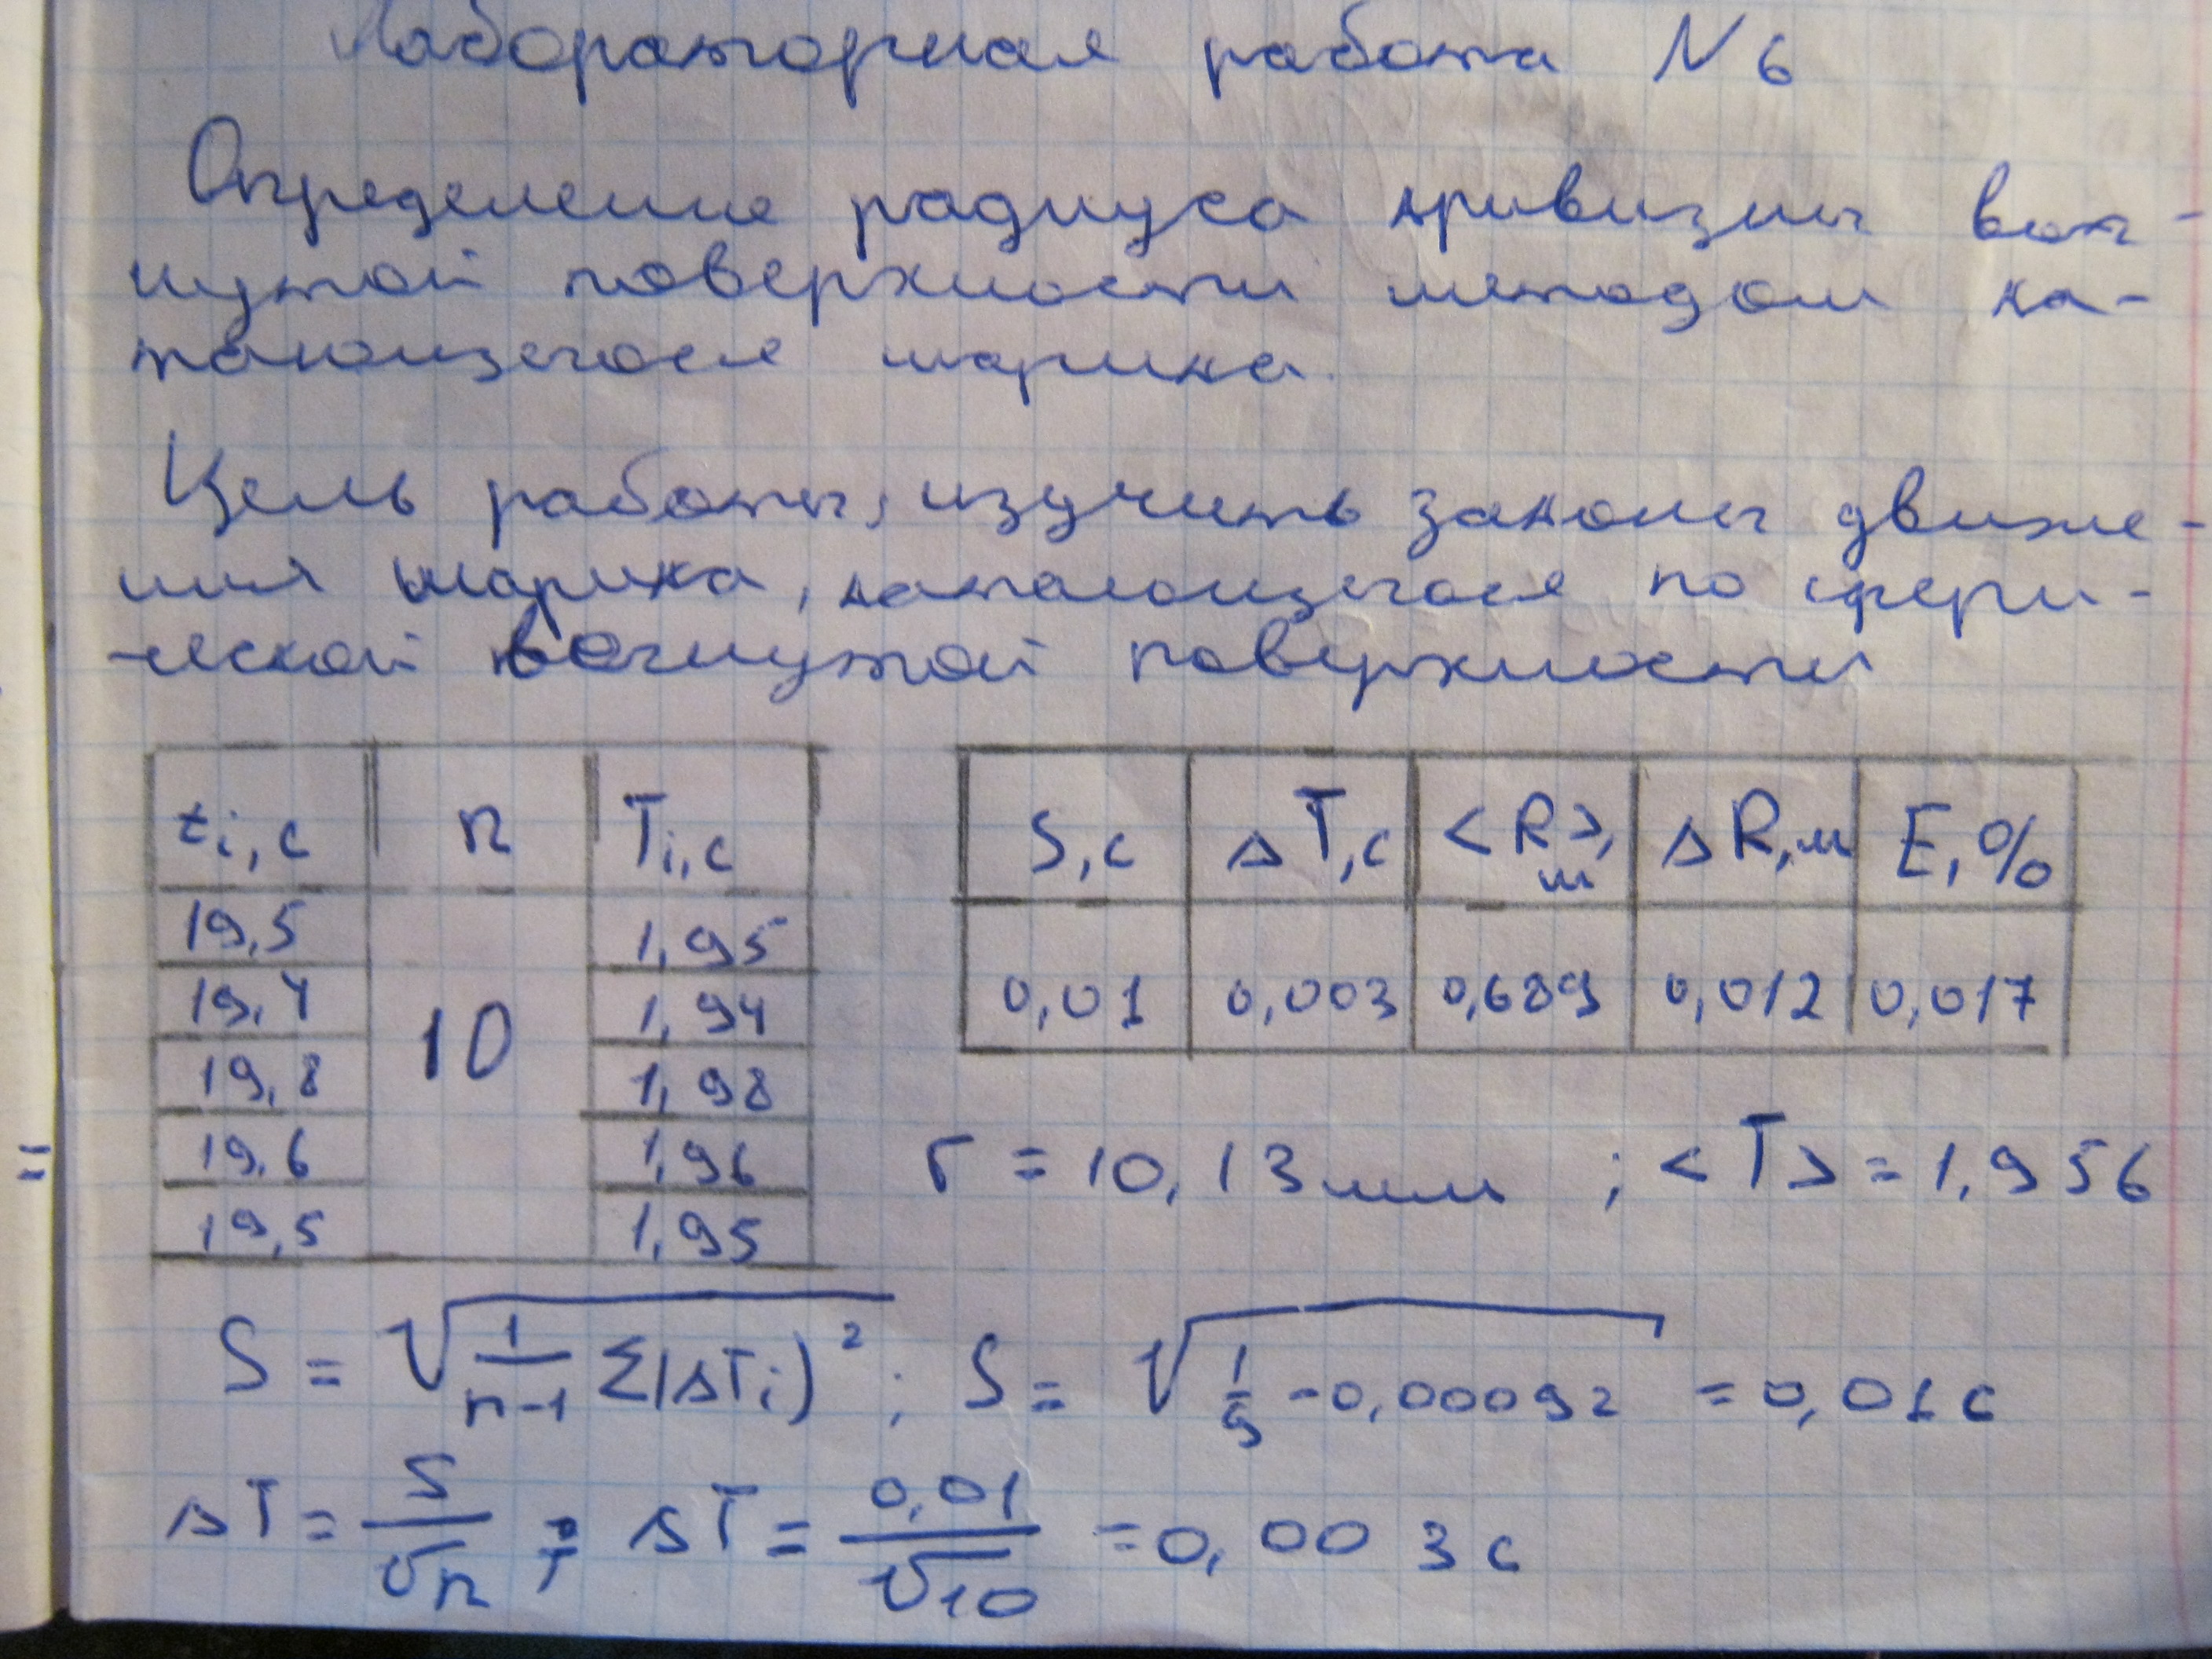 Лабораторная работа N 6
Определение радиуса кривизны вог-
нутой поверхности методом ка-
тающегося шарика.
Цель работы: изучить законы движе-
ния шарика, катающегося по сфери-
ческой вогнутой поверхности
ti, c n Ti, c
19,5 1,95
19,4 1,94
19,8 10 1,98
19,6 1,96
19,5 1,95
S, c ΔT, c <R>, м ΔR, м E, %
0,01 0,003 0,689 0,012 0,017
r = 10,13 мм ; <T> = 1,956
S = √(1/(n-1) Σ(ΔTi)²) ; S = √(1/9 - 0,00092) = 0,01 c
ΔT = S/√n ; ΔT = 0,01/√10 = 0,003 c
=